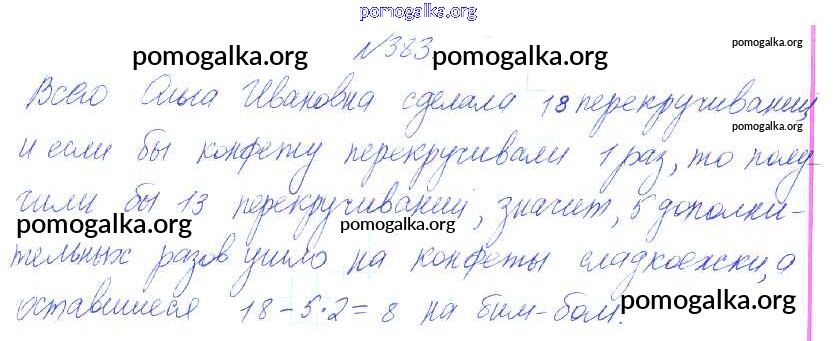 pomogalka.org
№383
pomogalka.org pomogalka.org pomogalka.org
Всего Ольга Ивановна сделала 18 перекручиваний
и если бы конфету перекручивали 1 раз, то полу
pomogalka.org
чили бы 13 перекручиваний, значит, 5 дополни-
pomogalka.org pomogalka.org pomogalka.org
тельных разов ушло на конфеты сладкоежки, а
оставшиеся 18-5·2=8 на бим-бом.
pomogalka.org